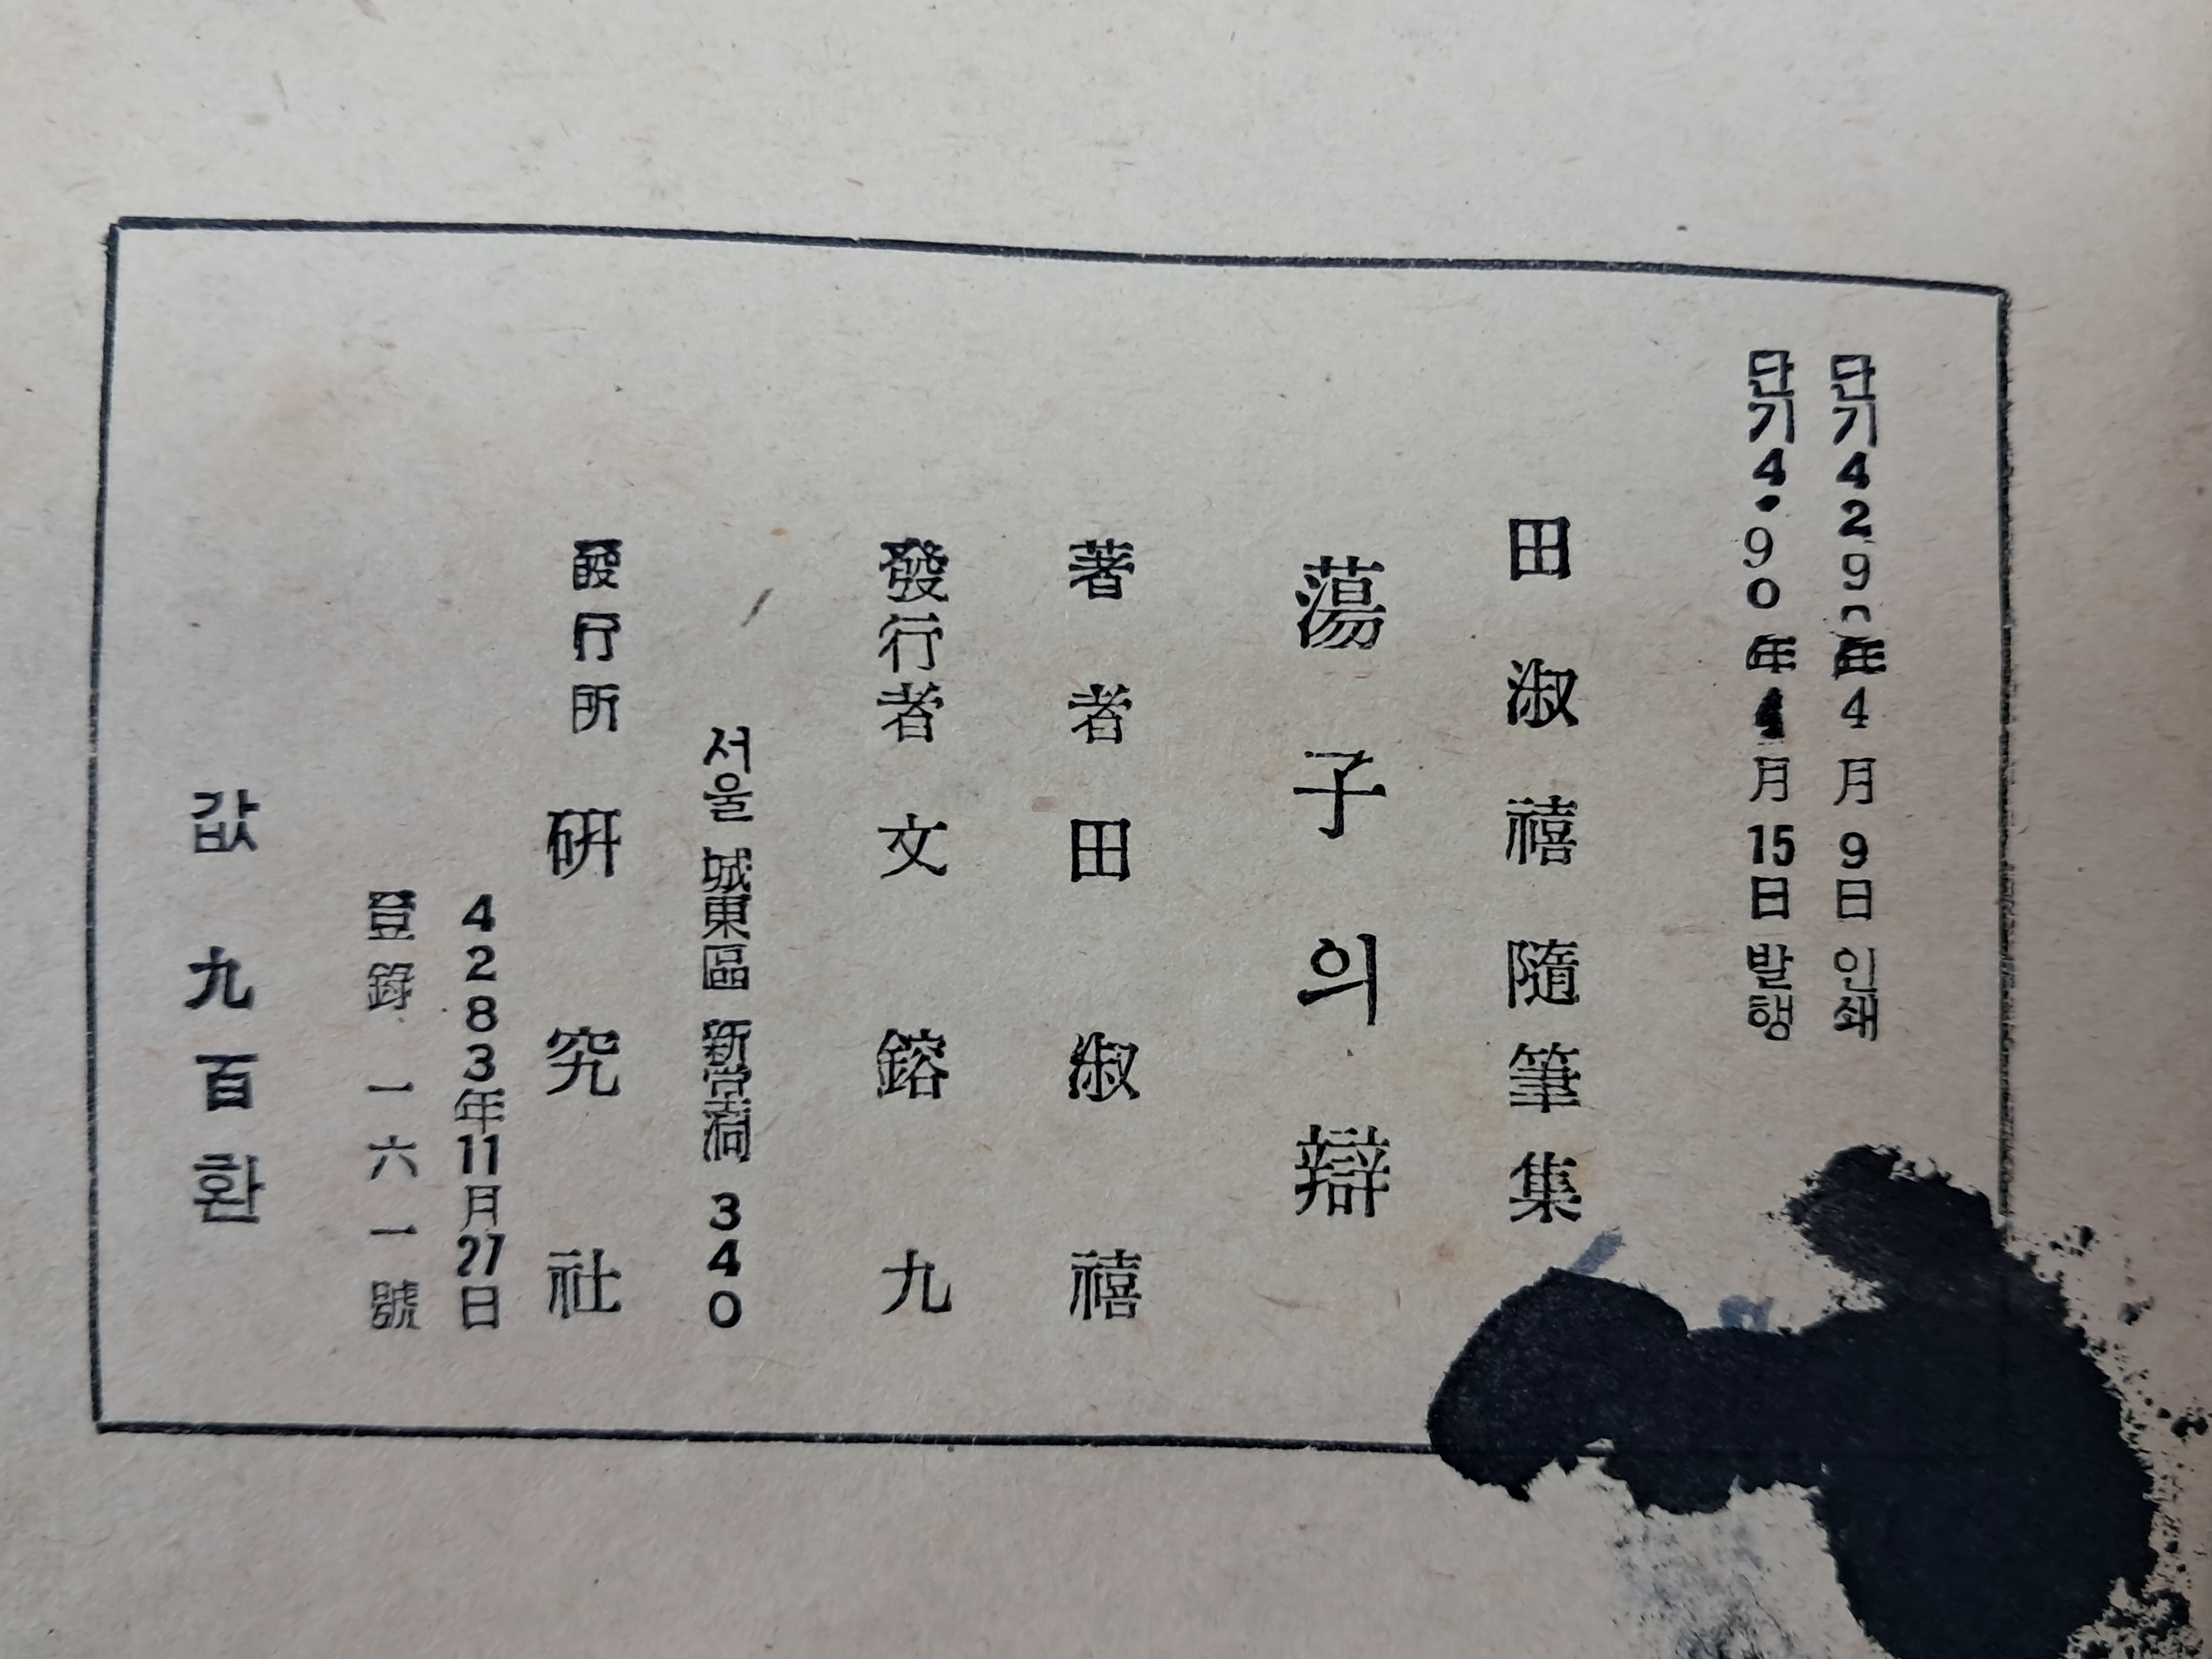 단기4290年4月9日 인쇄
단기4·90年4月15日 발행
田淑禧隨筆集
蕩子의辯
著者 田淑禧
發行者 文鎔九
서울 城東區 新堂洞 340
發行所 硏究社
4283年11月27日
登錄一六一一號
값 九百환